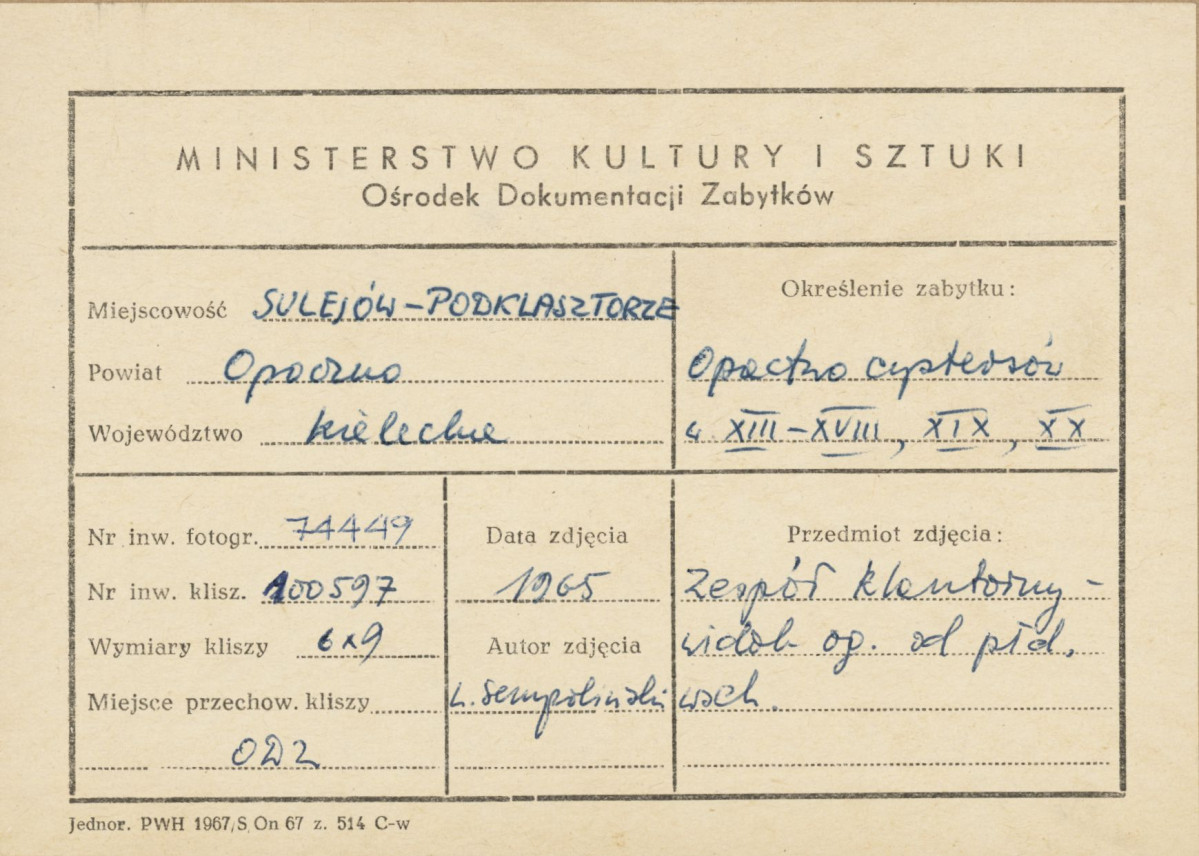 MINISTERSTWO KULTURY I SZTUKI
Ośrodek Dokumentacji Zabytków
Miejscowość SULEJÓW-PODKLASZTORZE
Powiat Opoczno
Województwo kieleckie
Określenie zabytku:
Opactwo cystersów
w. XIII-XVIII, XIX, XX
Nr inw. fotogr. 74449
Nr inw. klisz. 100597
Wymiary kliszy 6x9
Miejsce przechow. kliszy
ODZ
Data zdjęcia
1965
Autor zdjęcia
L. Sempoliński
Przedmiot zdjęcia:
Zespół klasztorny -
widok og. od płd.
wsch.
Jednor. PWH 1967/S On 67 z. 514 C-w